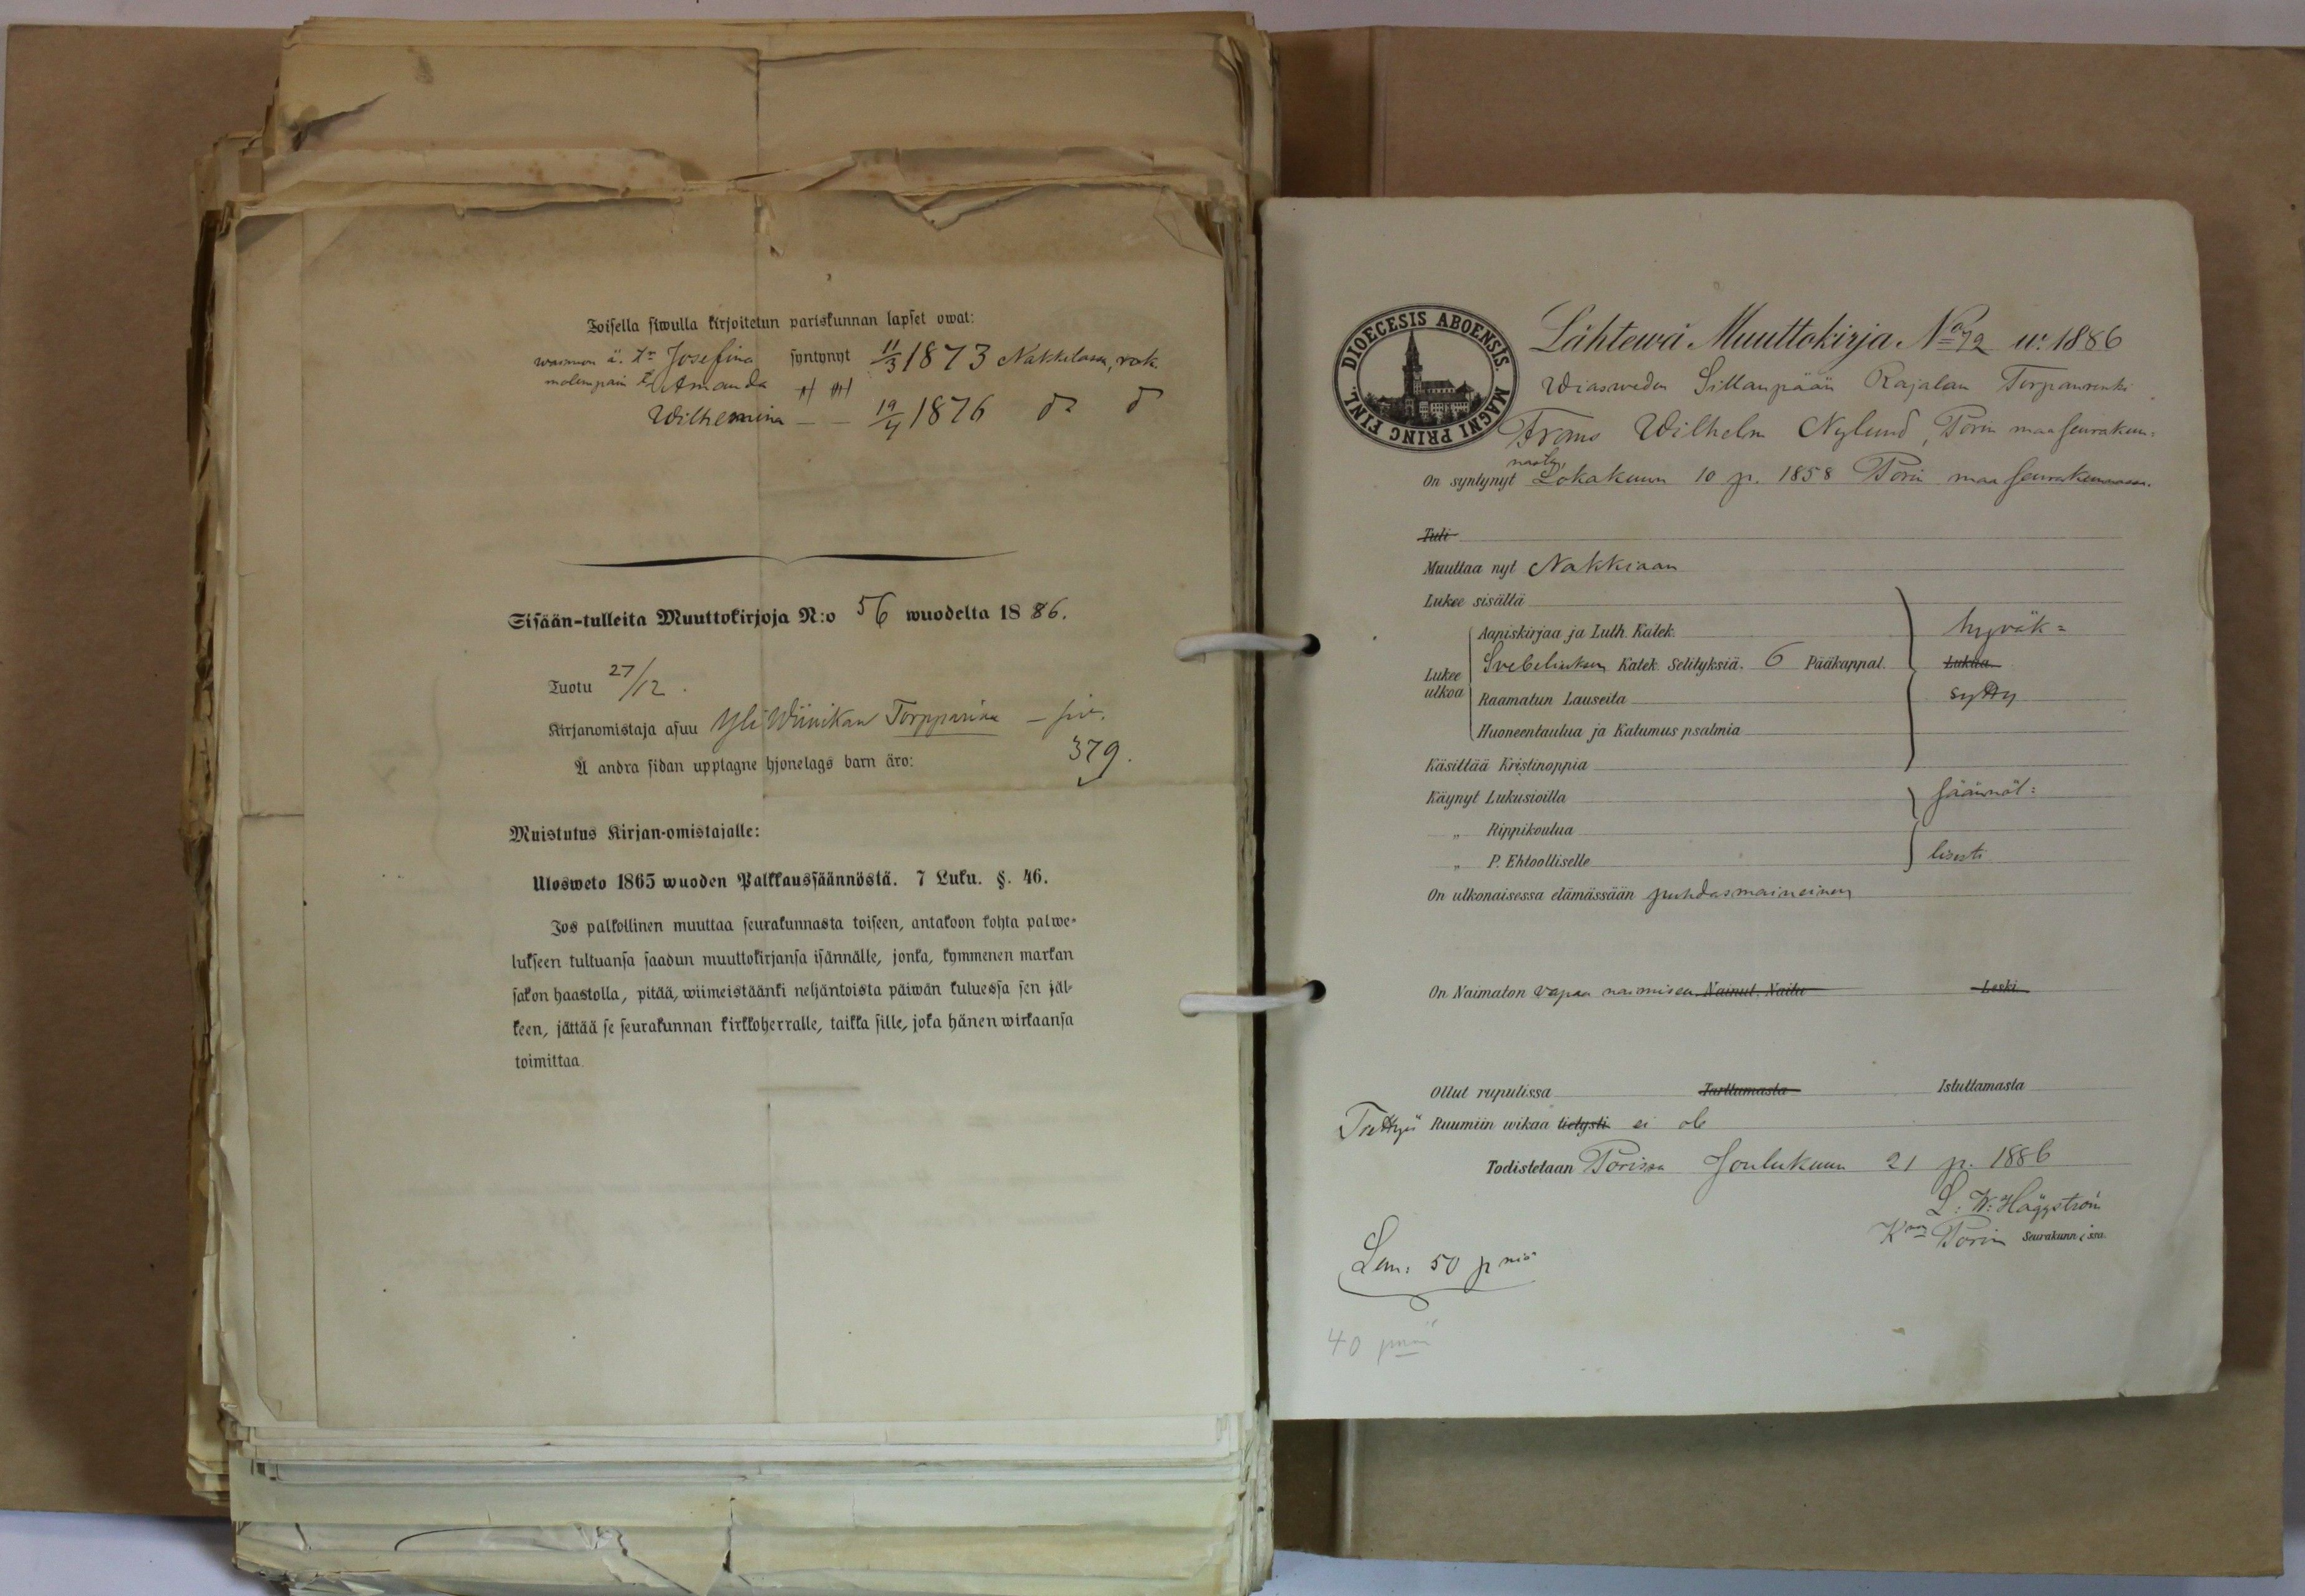 Toisella siwulla kirjoitetun pariskunnan lapset owat:
waimon ä. Tr Josefina syntynyt 11/3 1873 Nakkilassa, rok.
molempain Tr Amanda
Wilhelmina — — 19/4 1876 do do
Sisään-tulleita Muuttokirjoja N:o 56 wuodelta 1886.
Tuotu 27/12.
Kirjanomistaja asuu Yli Wiinikan Torpparina — siv.
379.
Å andra sidan upptagne hjonelags barn äro:
Muistutus Kirjan-omistajalle:
Ulosweto 1865 wuoden Palkkaussäännöstä. 7 Luku. §. 46.
Jos palkollinen muuttaa seurakunnasta toiseen, antakoon kohta palwe-
lukseen tultuansa saadun muuttokirjansa isännälle, jonka, kymmenen markan
sakon haastolla, pitää, wiimeistäänki neljäntoista päiwän kuluessa sen jäl-
keen, jättää se seurakunnan kirkkoherralle, taikka sille, joka hänen wirkaansa
toimittaa.
DIOECESIS ABOENSIS. MAGNI PRINC FINL.
Lähtewä Muuttokirja No 72 w. 1886
Wiasweden Sillanpään Rajalan Torpanrenki
Frans Wilhelm Nylund, Porin maaseurakun-
nasta,
On syntynyt Lokakuun 10 p. 1858 Porin maaseurakunnassa.
Tuli
Muuttaa nyt Nakkiaan
Lukee sisältä
Aapiskirjaa ja Luth. Katek. hyväk=
Lukee ulkoa Svebeliuksen Katek. Selityksiä. 6 Pääkappal. Lukua
Raamatun Lauseita sytty
Huoneentaulua ja Katumus psalmia
Käsittää Kristinoppia
Käynyt Lukusioilla säännöl=
„ Rippikoulua
„ P. Ehtoolliselle lisesti
On ulkonaisessa elämässään puhdasmaineinen
On Naimaton vapaa naimiseen Nainut. Naitu Leski
Ollut rupulissa Tarttumasta Istuttamasta
Tiettyä Ruumiin wikaa tietysti ei ole
Todistetaan Porissa Joulukuun 21 p. 1886
L. W. Häggström
Porin Seurakunnissa.
Lun: 50 pniä
40 pniä